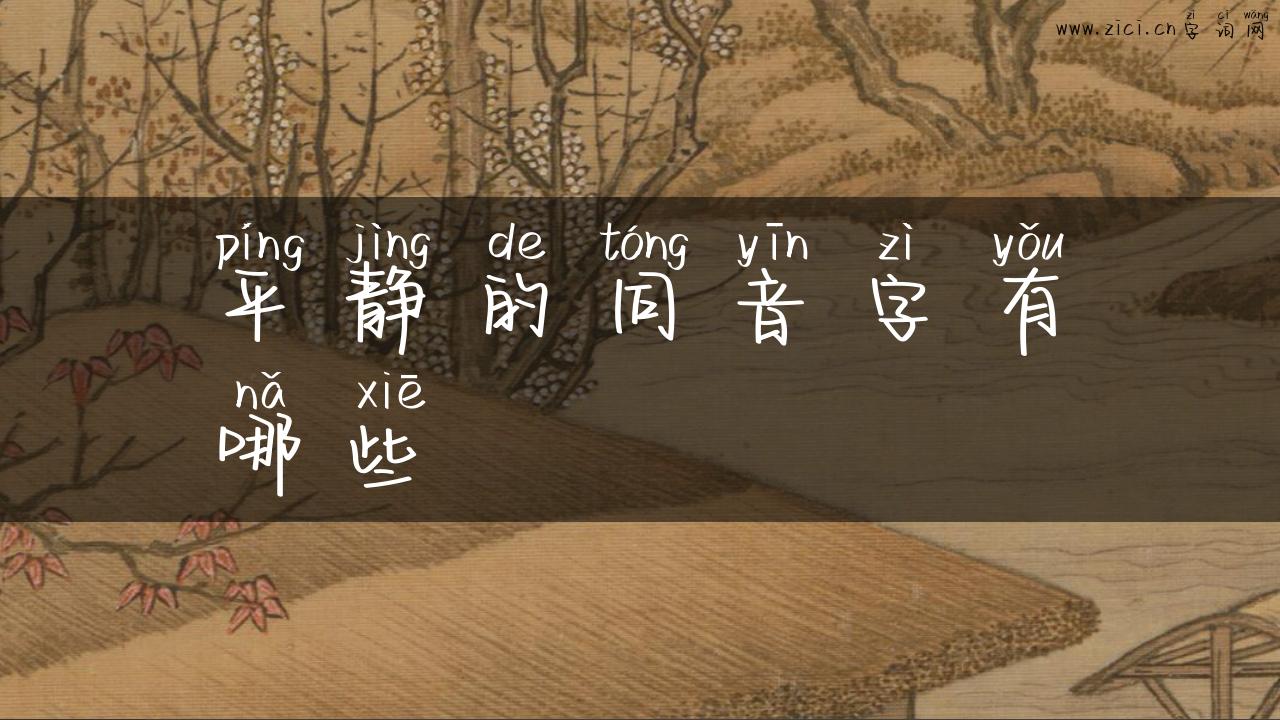 zì cí wǎng
www.zici.cn字词网
píng jìng de tóng yīn zì yǒu
平静的同音字有
nǎ xiē
哪些